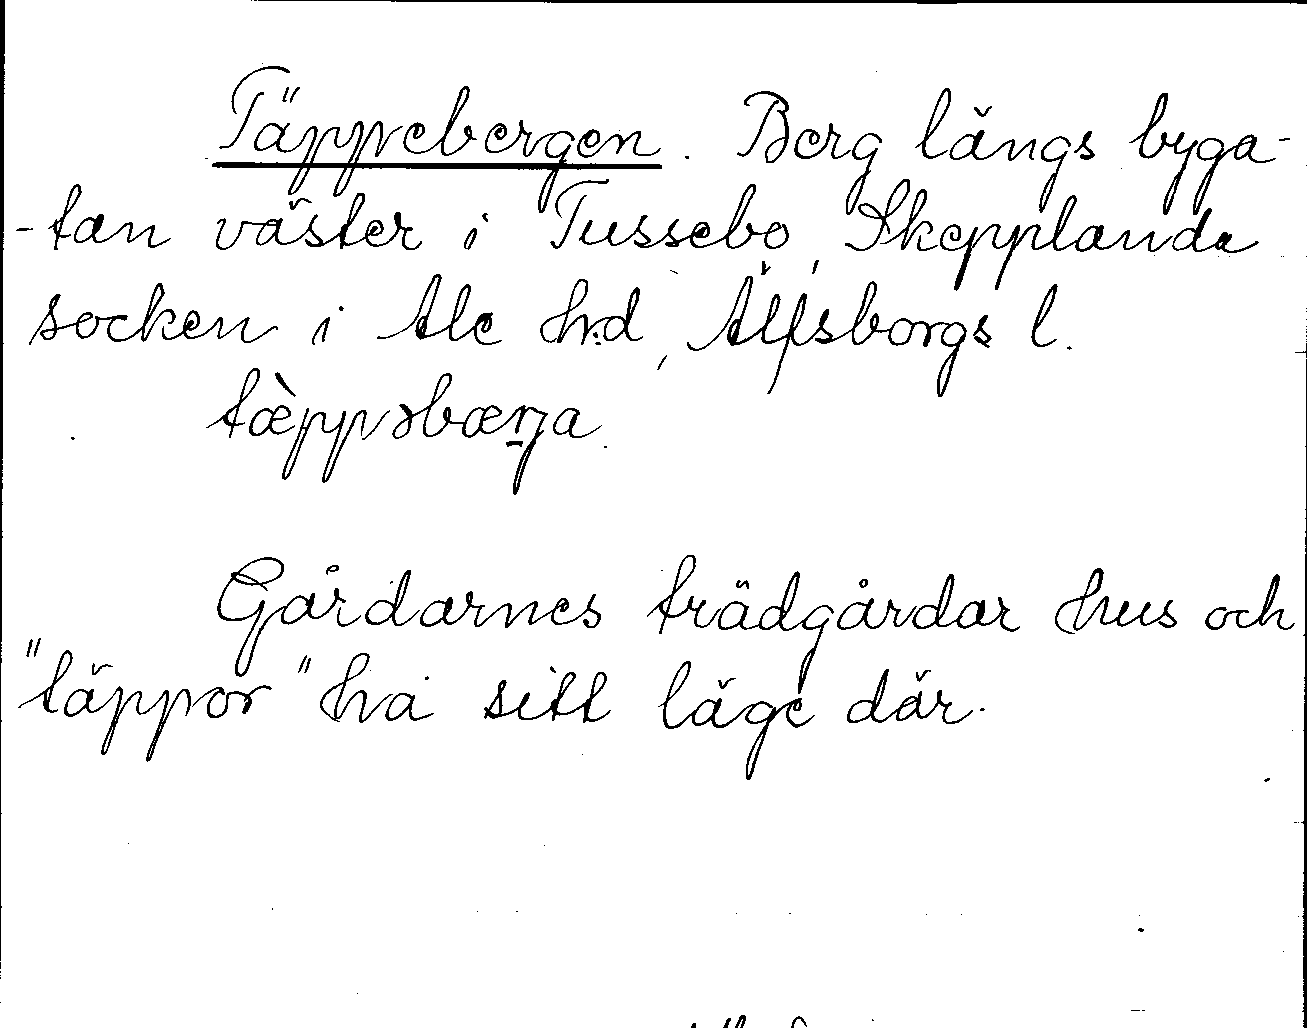 Täppebergen. Berg längs byga-
-tan väster i Tussebo, Skepplanda
socken i Ale hrd, Älfsborgs l.
tæ̀ppəbæṟja
Gårdarnes trädgårdar hus och
"täppor" ha sitt läge där.